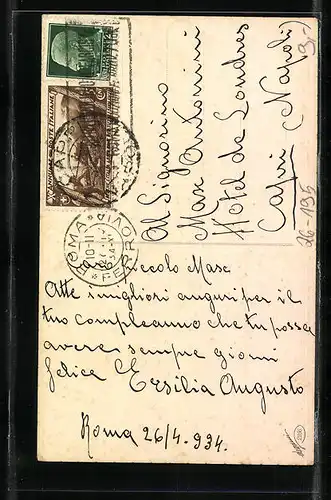 Al Signorino
Max Antonini
Hotel de Londres
Capri (Napoli)
3,-
26-195
POSTE ITALIANE
ROMA FERROVIA
10-11
Piccolo Max
Atte smigliori auguri per il
tuo compleanno che tu possa
avere sempre giorni
felice Ersilia Augusto
Roma 26/4. 934.